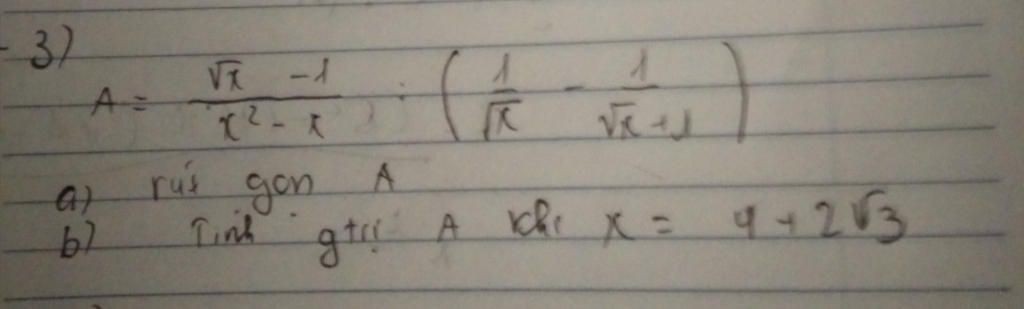 3)
A = \frac{\sqrt{x} - 1}{x^2 - x} : \left( \frac{1}{\sqrt{x}} - \frac{1}{\sqrt{x} + 1} \right)
a) rút gọn A
b) Tính gtrị A khi x = 4 + 2√3